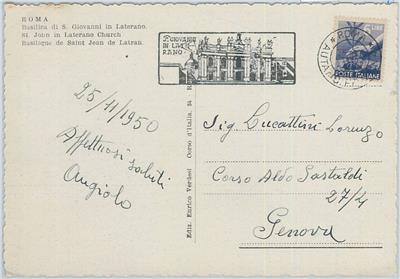 ROMA
Basilica di S. Giovanni in Laterano.
St. John in Laterano Church
Basilique de Saint Jean de Latran.
S. GIOVANNI
IN LATE
RANO
ROMA
POSTE ITALIANE
25/11/1950
Affettuosi saluti
Angiolo
Ediz. Enrico Verdesi Corso d'Italia, 34 R
Sig Lorenzo
Corso Aldo Gastaldi
27/4
Genova